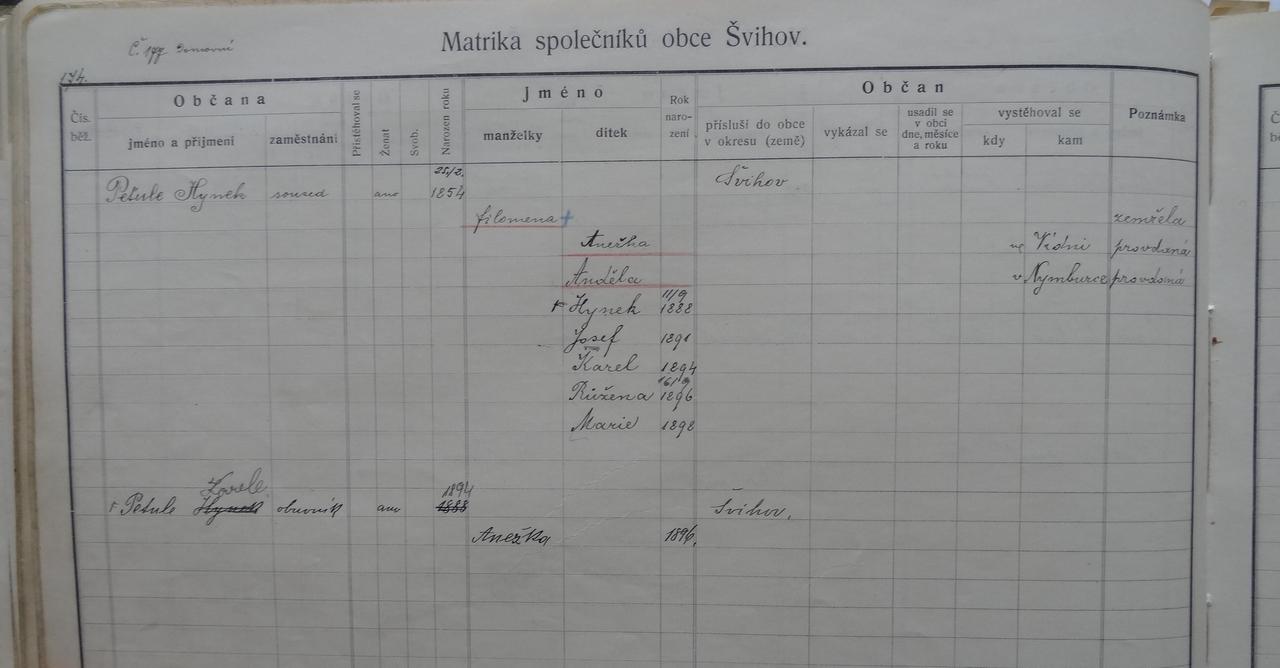 Č. 177 Domovní
Matrika společníků obce Švihov.
174.
Čís. běž.
Občana
jméno a příjmení
zaměstnání
Přistěhoval se
Ženat
Svob.
Narozen roku
Jméno
manželky
dítek
Rok naro- zení
Občan
přísluší do obce v okresu (země)
vykázal se
usadil se v obci dne, měsíce a roku
vystěhoval se
kdy
kam
Poznámka
25/2.
Petule Hynek soused ano 1854 Švihov
filomena + zemřela
Anežka ve Vídni provdaná
Anděla v Nymburce provdaná
11/9
Hynek 1888
Josef 1891
Karel 1894
Růžena 1896
Marie 1898
Karel 1894
Petule Hynek obuvník ano 1888 Švihov.
Anežka 1896.